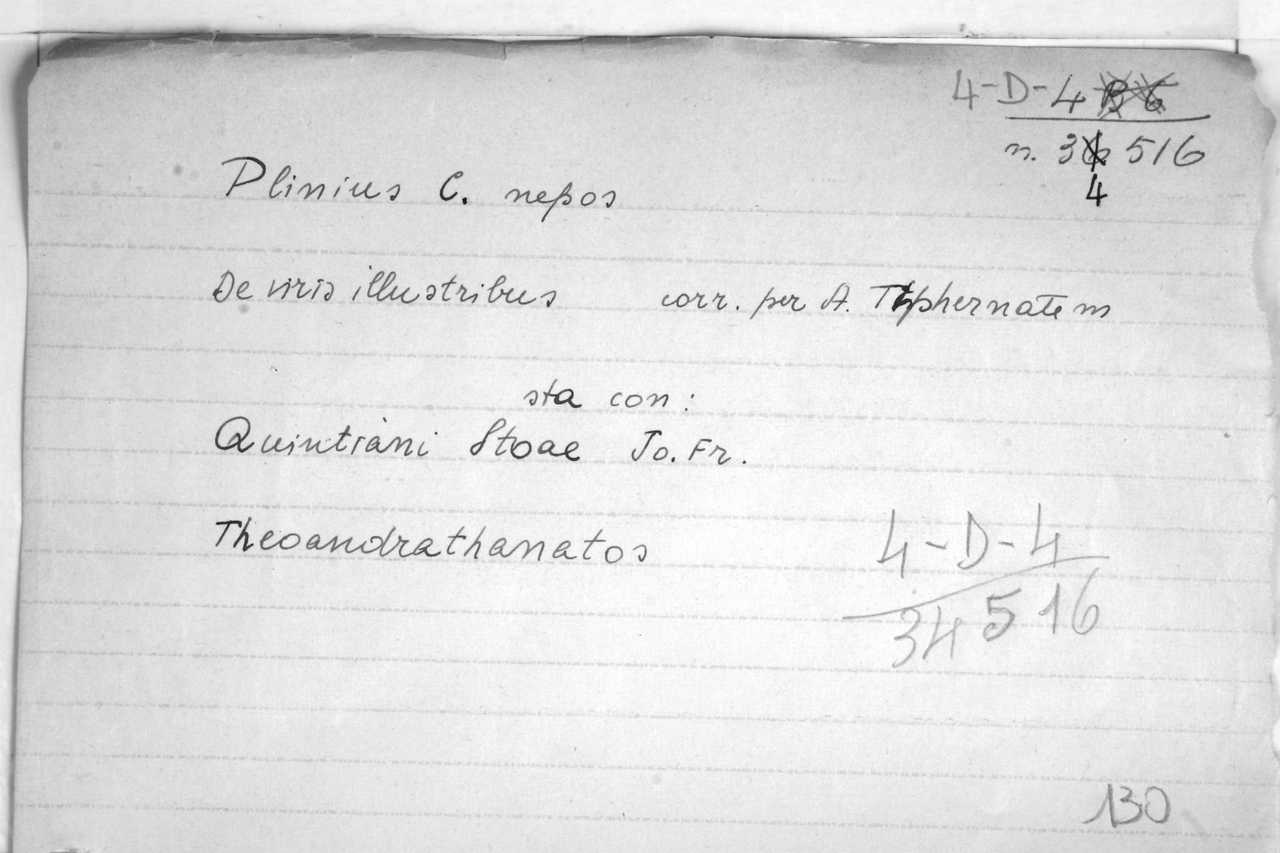 4-D-4
n. 34 516
Plinius C. nepos
De viris illustribus corr. per A. Typhernatem
sta con:
Quintiani Stoae Jo. Fr.
Theoandrathanatos
4-D-4
34516
130